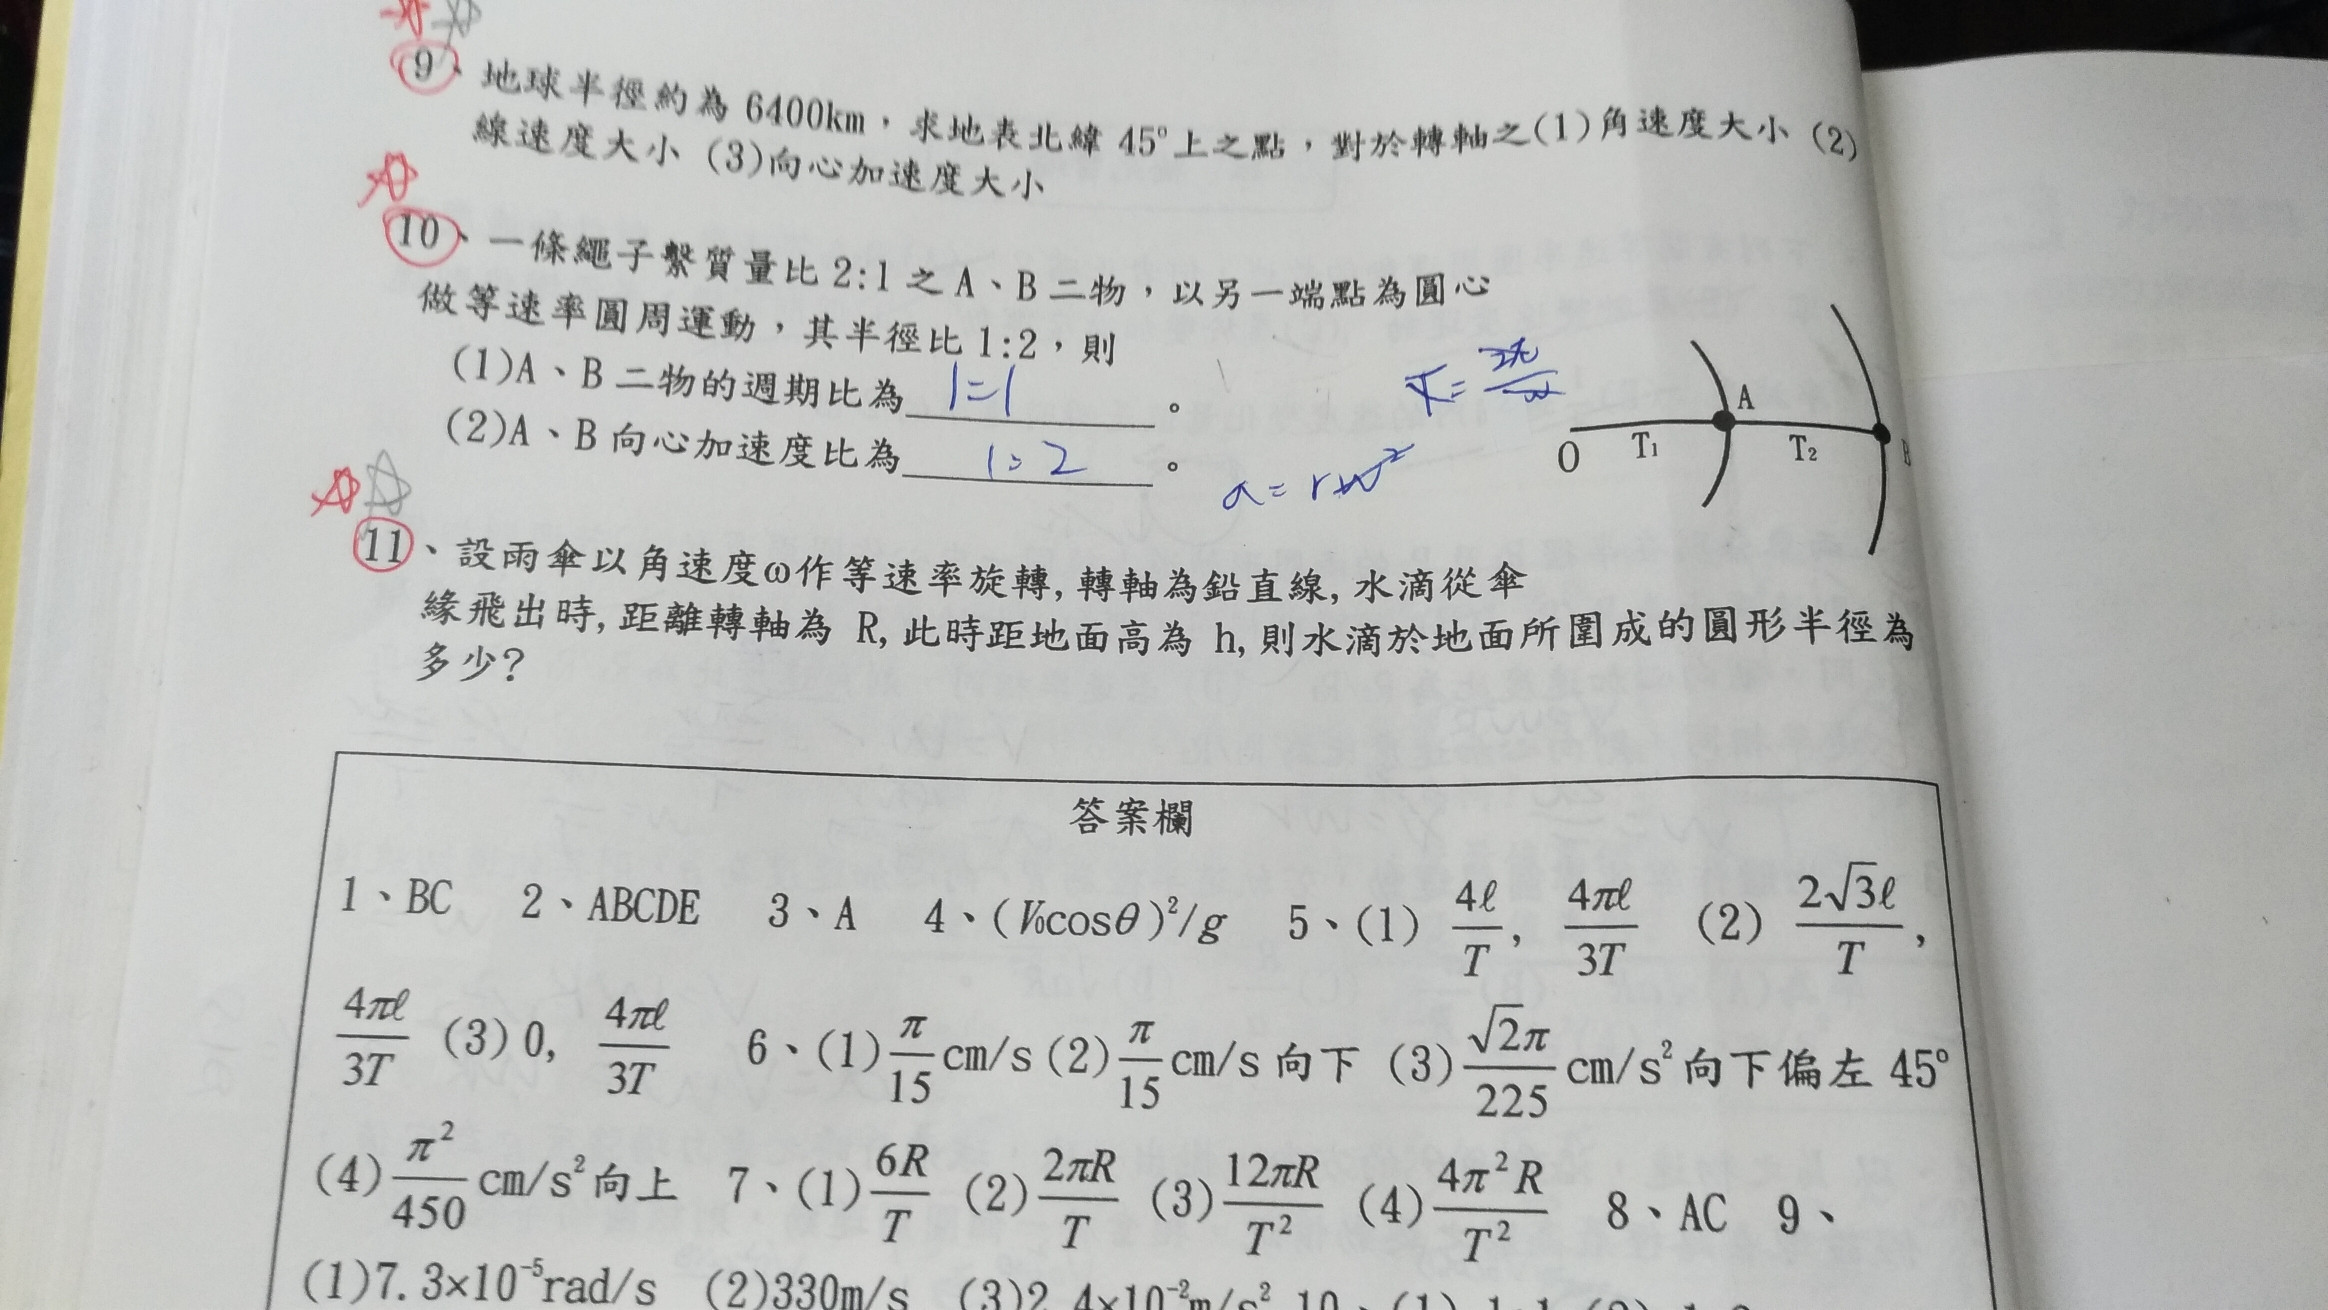 9、地球半徑約為 6400km，求地表北緯 45°上之點，對於轉軸之(1)角速度大小 (2)
線速度大小 (3)向心加速度大小
10、一條繩子繫質量比 2:1 之 A、B 二物，以另一端點為圓心
做等速率圓周運動，其半徑比 1:2，則
(1)A、B 二物的週期比為 1=1 。
(2)A、B 向心加速度比為 1:2 。
T=2π/ω
a=rω²
A
O T₁ T₂ B
11、設雨傘以角速度ω作等速率旋轉, 轉軸為鉛直線, 水滴從傘
緣飛出時, 距離轉軸為 R, 此時距地面高為 h, 則水滴於地面所圍成的圓形半徑為
多少?
答案欄
1、BC 2、ABCDE 3、A 4、(V₀cosθ)²/g 5、(1) 4ℓ/T, 4πℓ/3T (2) 2√3ℓ/T,
4πℓ/3T (3)0, 4πℓ/3T 6、(1)π/15 cm/s (2)π/15 cm/s 向下 (3)√2π/225 cm/s² 向下偏左 45°
(4)π²/450 cm/s² 向上 7、(1)6R/T (2)2πR/T (3)12πR/T² (4)4π²R/T² 8、AC 9、
(1)7.3×10⁻⁵rad/s (2)330m/s (3)2.4×10⁻²m/s² 10、(1) 1:1 (2) 1:2